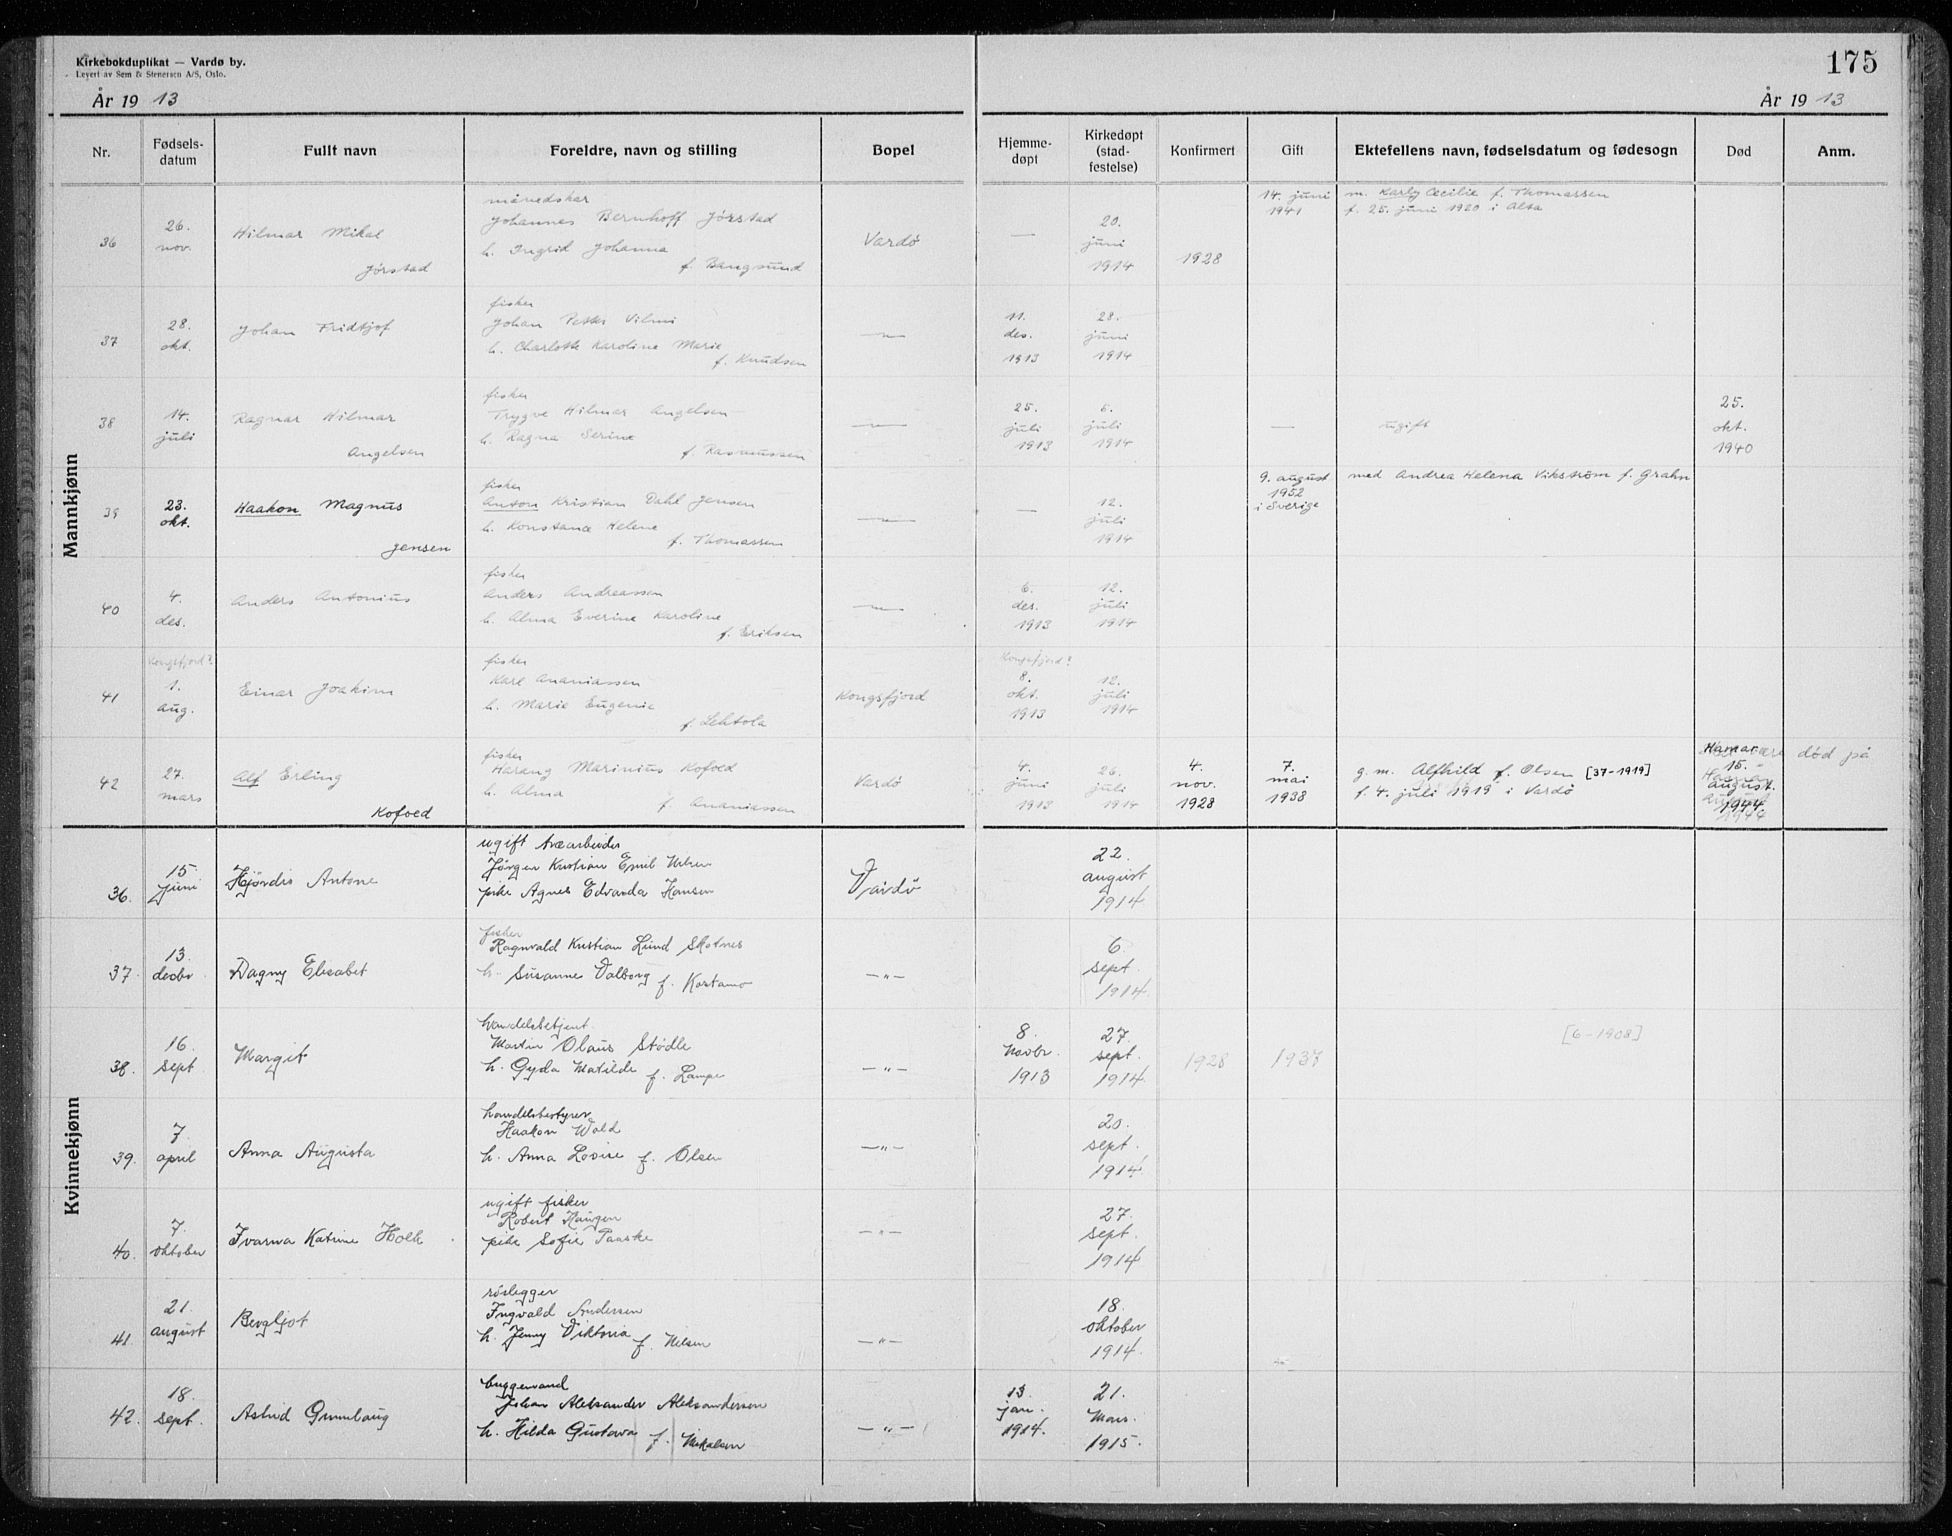 Kirkebokduplikat — Vardø by.
Levert av Sem & Stenersen A/S, Oslo.
175
År 19 13
År 19 13
Nr. Fødsels-datum Fullt navn Foreldre, navn og stilling Bopel Hjemme-døpt Kirkedøpt (stad-festelse) Konfirmert Gift Ektefellens navn, fødselsdatum og fødesogn Død Anm.
Mannkjønn
36
26.
nov.
Hilmar Mikal
Jørstad
månedskar
Johannes Bernhoff Jørstad
h. Ingrid Johanna
f. Bangsund
Vardö
—
20.
juni
1914
1928
14. juni
1941
m. Karly Cecilie f. Thomassen
f. 25. juni 1920 i Alta
37
28.
okt.
Johan Fridtjof
fisker
Johan Peter Vilmi
h. Charlotte Karoline Marie
f. Knudsen
—"—
11.
des.
1913
28.
juni
1914
38
14.
juli
Ragnar Hilmar
Angelsen
fisker
Trygve Hilmar Angelsen
h. Ragna Serine
f. Rasmussen
—"—
25.
juli
1913
5.
juli
1914
—
ugift
25.
okt.
1940
39
23.
okt.
Haakon Magnus
Jensen
fisker
Anton Kristian Dahl Jensen
h. Konstance Helene
f. Thomassen
—"—
—
12.
juli
1914
9. august
1952
i Sverige
med Andrea Helena Vikström f. Grahn
40
4.
des.
Anders Antonius
fisker
Anders Andreassen
h. Alma Everine Karoline
f. Eriksen
—"—
6.
des.
1913
12.
juli
1914
41
Kongsfjord?
1.
aug.
Einar Joakim
fisker
Karl Ananiassen
h. Marie Eugenie
f. Lehtola
Kongsfjord
Kongsfjord?
8.
okt.
1913
12.
juli
1914
42
27.
mars
Alf Erling
Kofoed
fisker
Harang Marinius Kofoed
h. Alma
f. Ananiassen
Vardö
4.
juni
1913
26.
juli
1914
4.
nov.
1928
7.
mai
1938
g. m. Alfhild f. Olsen [37-1919]
f. 4. juli 1919 i Vardö
Hamar
15.
august.
1944
død på
Kvinnekjønn
36.
15
juni
Hjördis Antone
ugift træarbeider
Jörgen Kristian Emil Nilsen
pike Agnes Edvarda Hansen
Vardö
22.
august
1914
37.
13.
decbr.
Dagny Elisabet
fisker
Ragnvald Kristian Lund Skotnes
h. Susanne Valborg f. Kostamo
—"—
6.
sept.
1914.
38.
16.
sept.
Margit
handelsbetjent.
Martin Olaus Stödle
h. Gyda Matilde f. Lampe
—"—
8.
Novbr.
1913
27.
sept.
1914.
1928
1937
[6-1908]
39.
7
april
Anna Augusta
handelsbestyrer
Haakon Wold
h. Anna Lovise f. Olsen
—"—
20.
sept.
1914.
40.
7.
oktober
Ivarna Katrine Holk
ugift fisker
Robert Haugen
pike Sofie Paaske
—"—
27.
sept.
1914
41.
21.
august
Bergljot
rörlegger
Ingvald Andersen
h. Jenny Viktoria f. Nilsen
—"—
18.
oktober
1914.
42.
18.
sept.
Astrid Gunnlaug
bryggemand
Johan Aleksander Aleksandersen
h. Hilda Gustava f. Mikalsen
—"—
13.
jan.
1914.
21.
Mars.
1915.